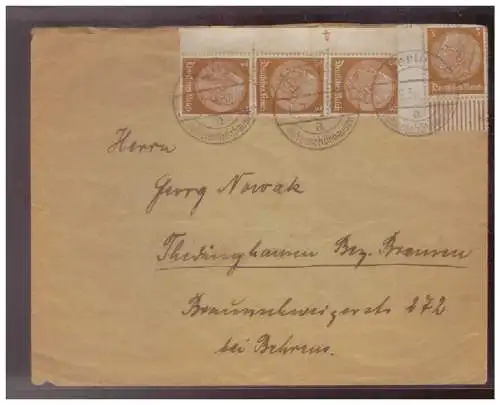 4
Deutsches Reich
Deutsches Reich
Deutsches Reich
Deutsches Reich
a
a
Herrn
Georg Nowak
Thedinghausen Bez. Bremen
Braunschweigerstr 272
bei Behrens.